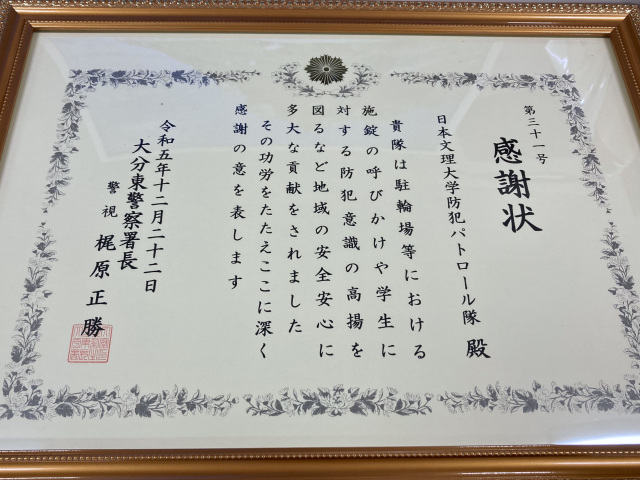 第三十一号
感謝状
日本文理大学防犯パトロール隊 殿
貴隊は駐輪場等における
施錠の呼びかけや学生に
対する防犯意識の高揚を
図るなど地域の安全安心に
多大な貢献をされました
その功労をたたえここに深く
感謝の意を表します
令和五年十二月二十二日
大分東警察署長
警視 梶原正勝